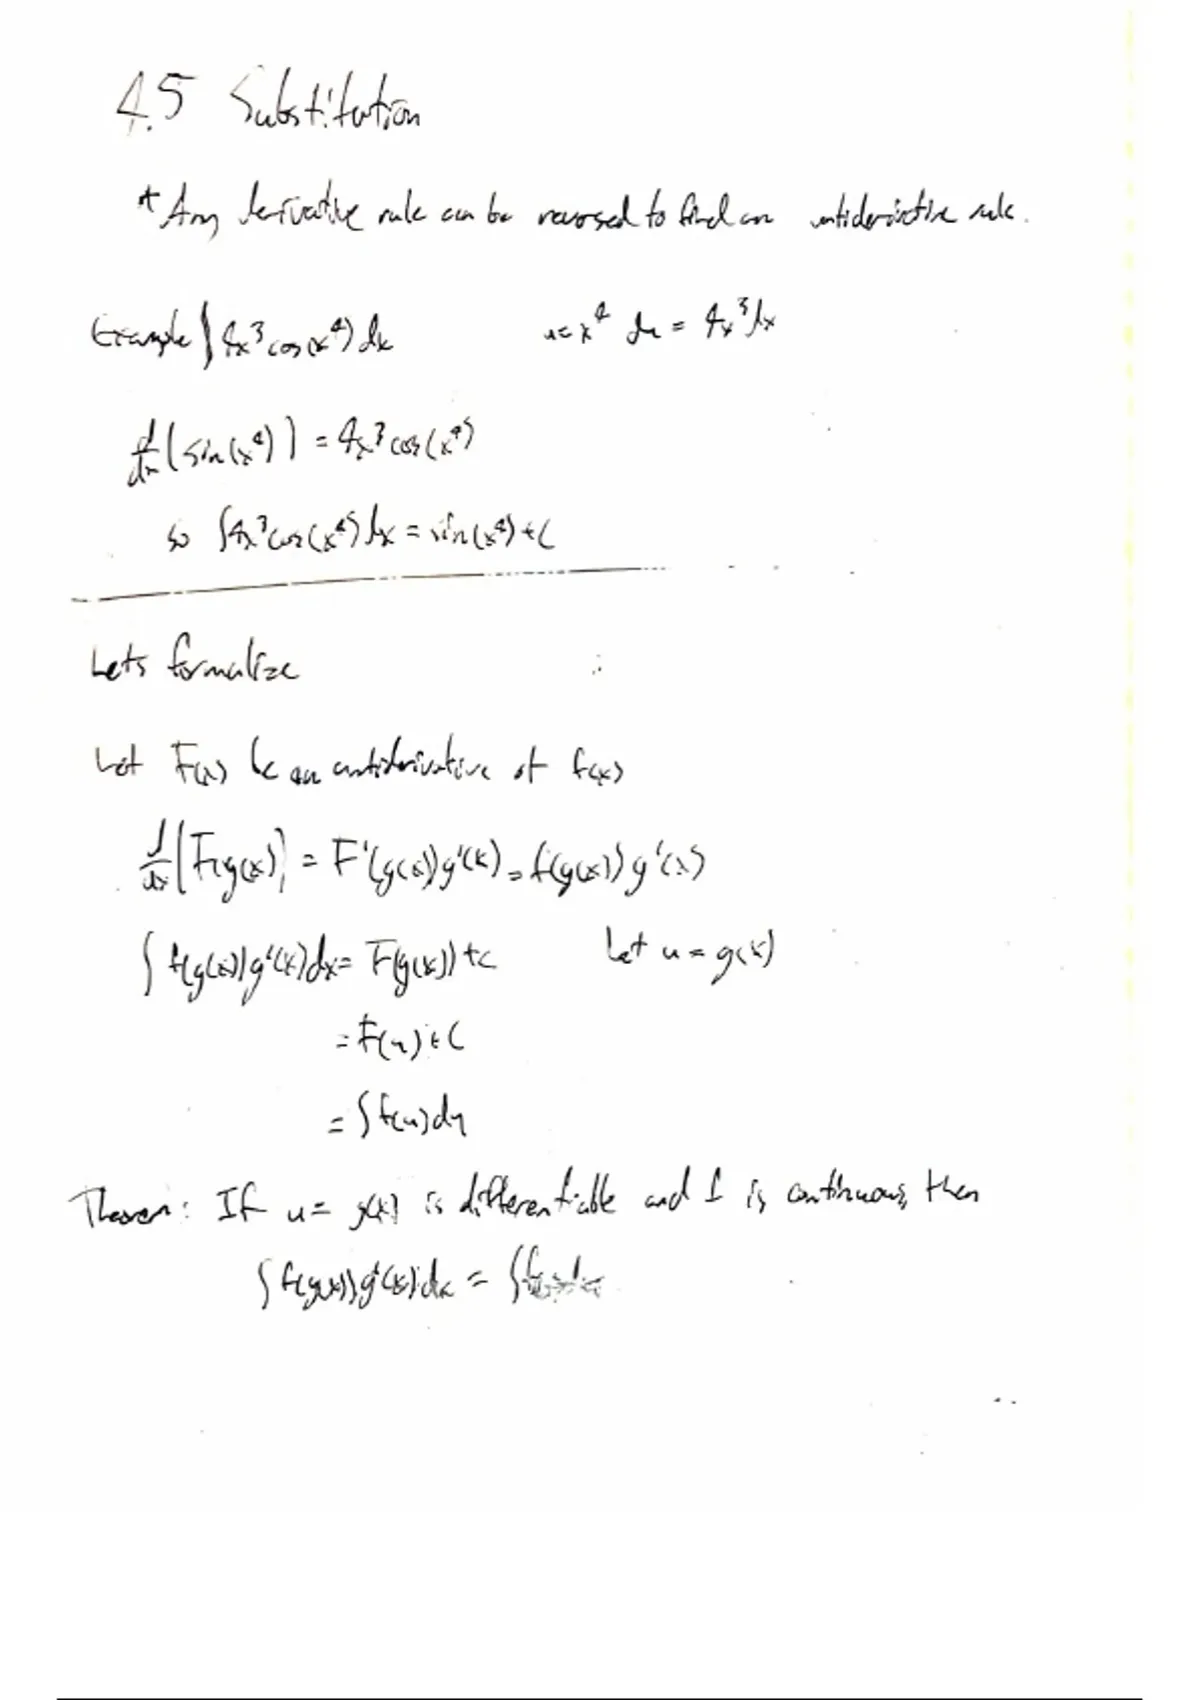 4.5 Substitution
* Any derivative rule can be reversed to find an antiderivative rule.
Example ∫ 4x³cos(x⁴) dx   u = x⁴  du = 4x³dx
d/dx (sin(x⁴)) = 4x³ cos(x⁴)
so ∫4x³cos(x⁴) dx = sin(x⁴) + C
Lets formalize
Let F(x) be an antiderivative of f(x)
d/dx [F(g(x))] = F'(g(x))g'(x) = f(g(x)) g'(x)
∫ f(g(x))g'(x)dx = F(g(x)) + C   Let u = g(x)
= F(u) + C
= ∫ f(u) du
Theorem: If u = g(x) is differentiable and f is continuous, then
∫ f(g(x))g'(x)dx = ∫